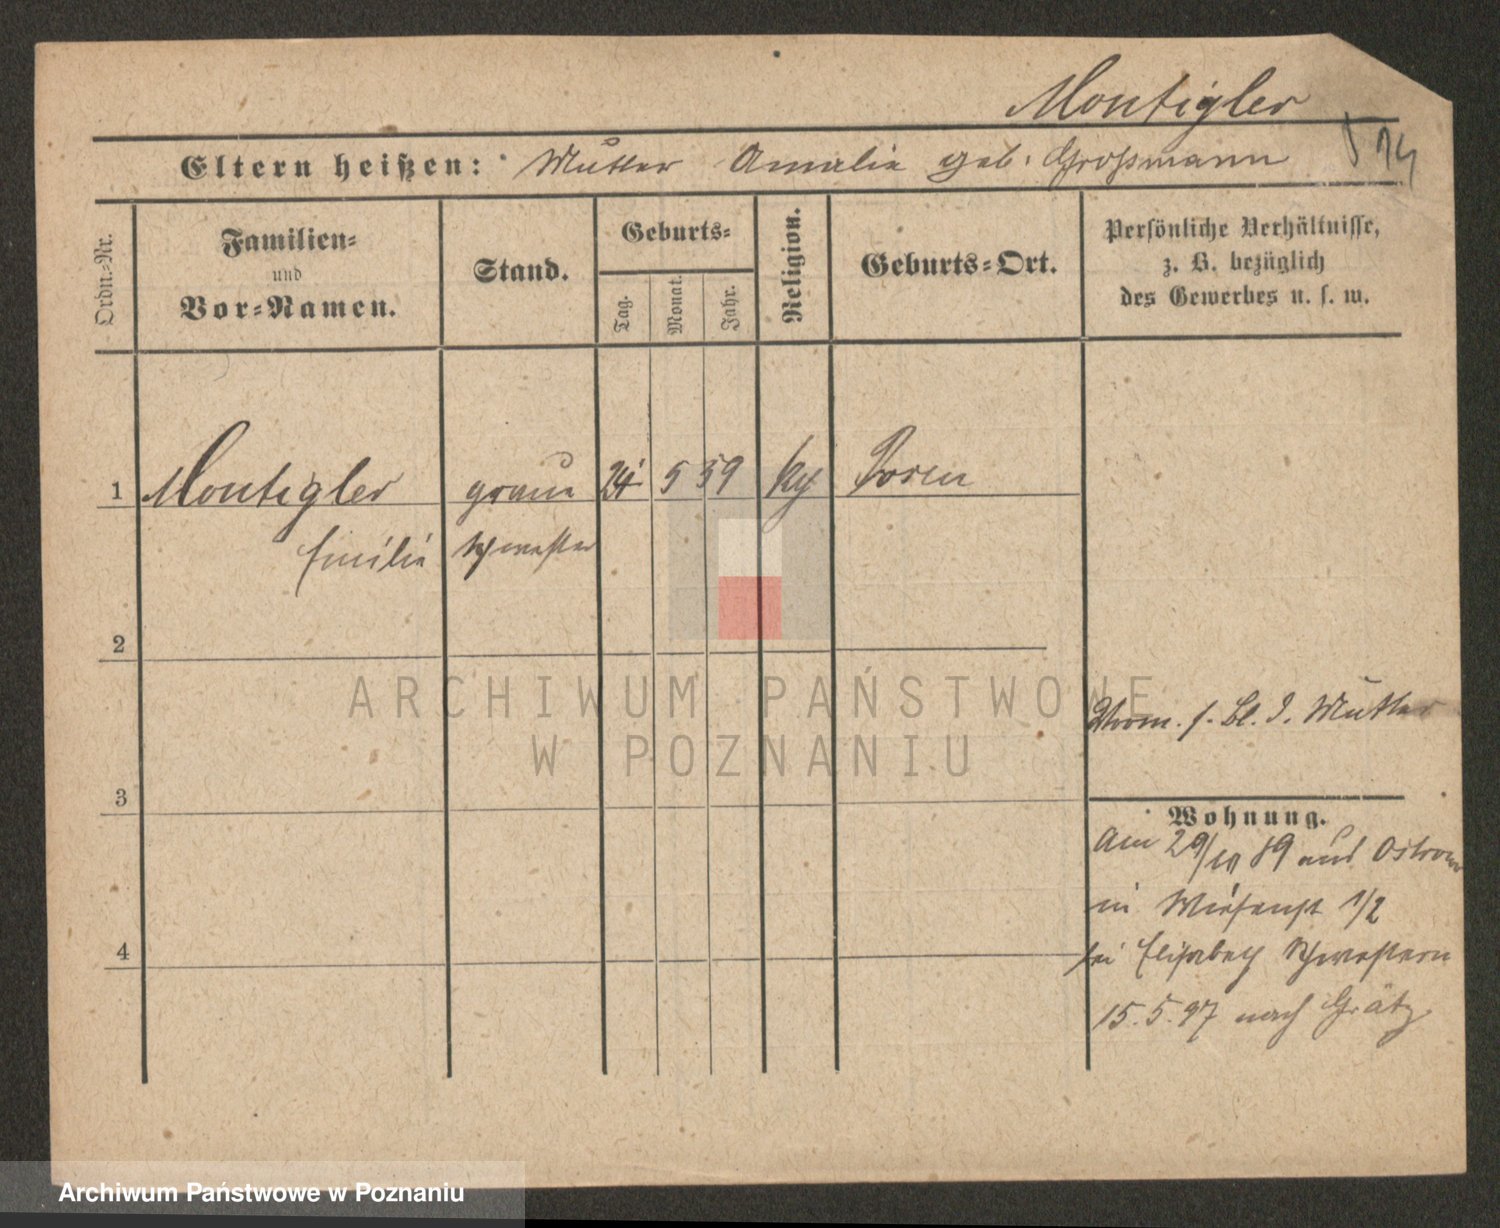 Montigler
Eltern heißen: Mutter Amalie geb. Großmann
Ordn.-Nr.
Familien-
und
Vor-Namen.
Stand.
Geburts-
Tag.
Monat.
Jahr.
Religion.
Geburts-Ort.
Persönliche Verhältnisse,
z. B. bezüglich
des Gewerbes u. s. w.
1 Montigler graue 24 5 59 Posen
Emilie Schwester
2
ARCHIWUM PAŃSTWOWE
W POZNANIU
s. Bl. d. Mutter
3
Wohnung.
Am 29/10 89 aus Ostrowo
in Wiesenst 1/2
bei Elisabeth Schwestern
4
15.5.97 nach Grätz
Archiwum Państwowe w Poznaniu